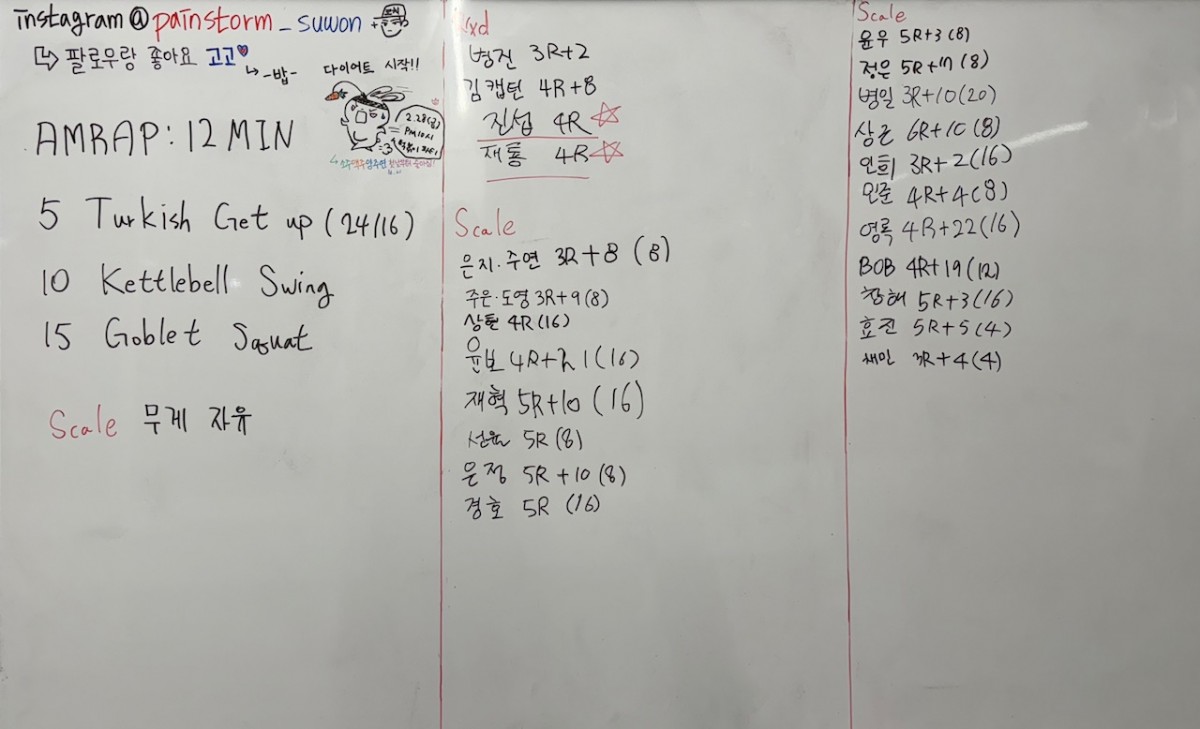 instagram@painstorm_suwon
팔로우랑 좋아요 고고♥
-밥-
다이어트 시작!!
2.28(금)
PM10시
AMRAP: 12 MIN
5 Turkish Get up (24/16)
10 Kettlebell Swing
15 Goblet Squat
Scale 무게 자유
Rxd
병진 3R+2
김캡틴 4R+8
진섭 4R☆
재통 4R☆
Scale
은지·주연 3R+8 (8)
주은·도영 3R+9(8)
상훈 4R(16)
윤보 4R+21(16)
재혁 5R+10 (16)
선윤 5R(8)
은정 5R+10(8)
경호 5R (16)
Scale
윤우 5R+3(8)
정은 5R+17(8)
병일 3R+10(20)
상근 6R+10(8)
인희 3R+2(16)
민준 4R+4(8)
영록 4R+22(16)
BOB 4R+19(12)
창해 5R+3(16)
효진 5R+5(4)
채민 3R+4(4)